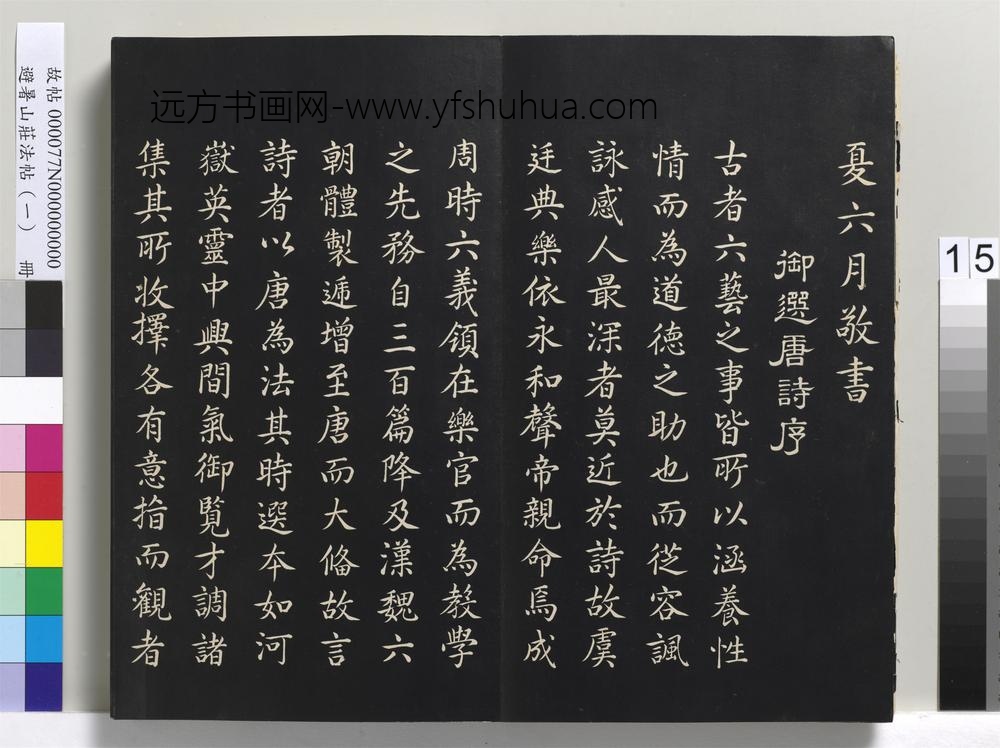 故帖000077N000000000
避暑山莊法帖(一) 冊
远方书画网-www.yfshuhua.com
15
夏六月敬書
御選唐詩序
古者六藝之事皆所以涵養性
情而為道德之助也而從容諷
詠感人最深者莫近於詩故虞
廷典樂依永和聲帝親命焉成
周時六義領在樂官而為教學
之先務自三百篇降及漢魏六
朝體製遞增至唐而大俻故言
詩者以唐為法其時選本如河
嶽英靈中興間氣御覽才調諸
集其所收擇各有意指而觀者